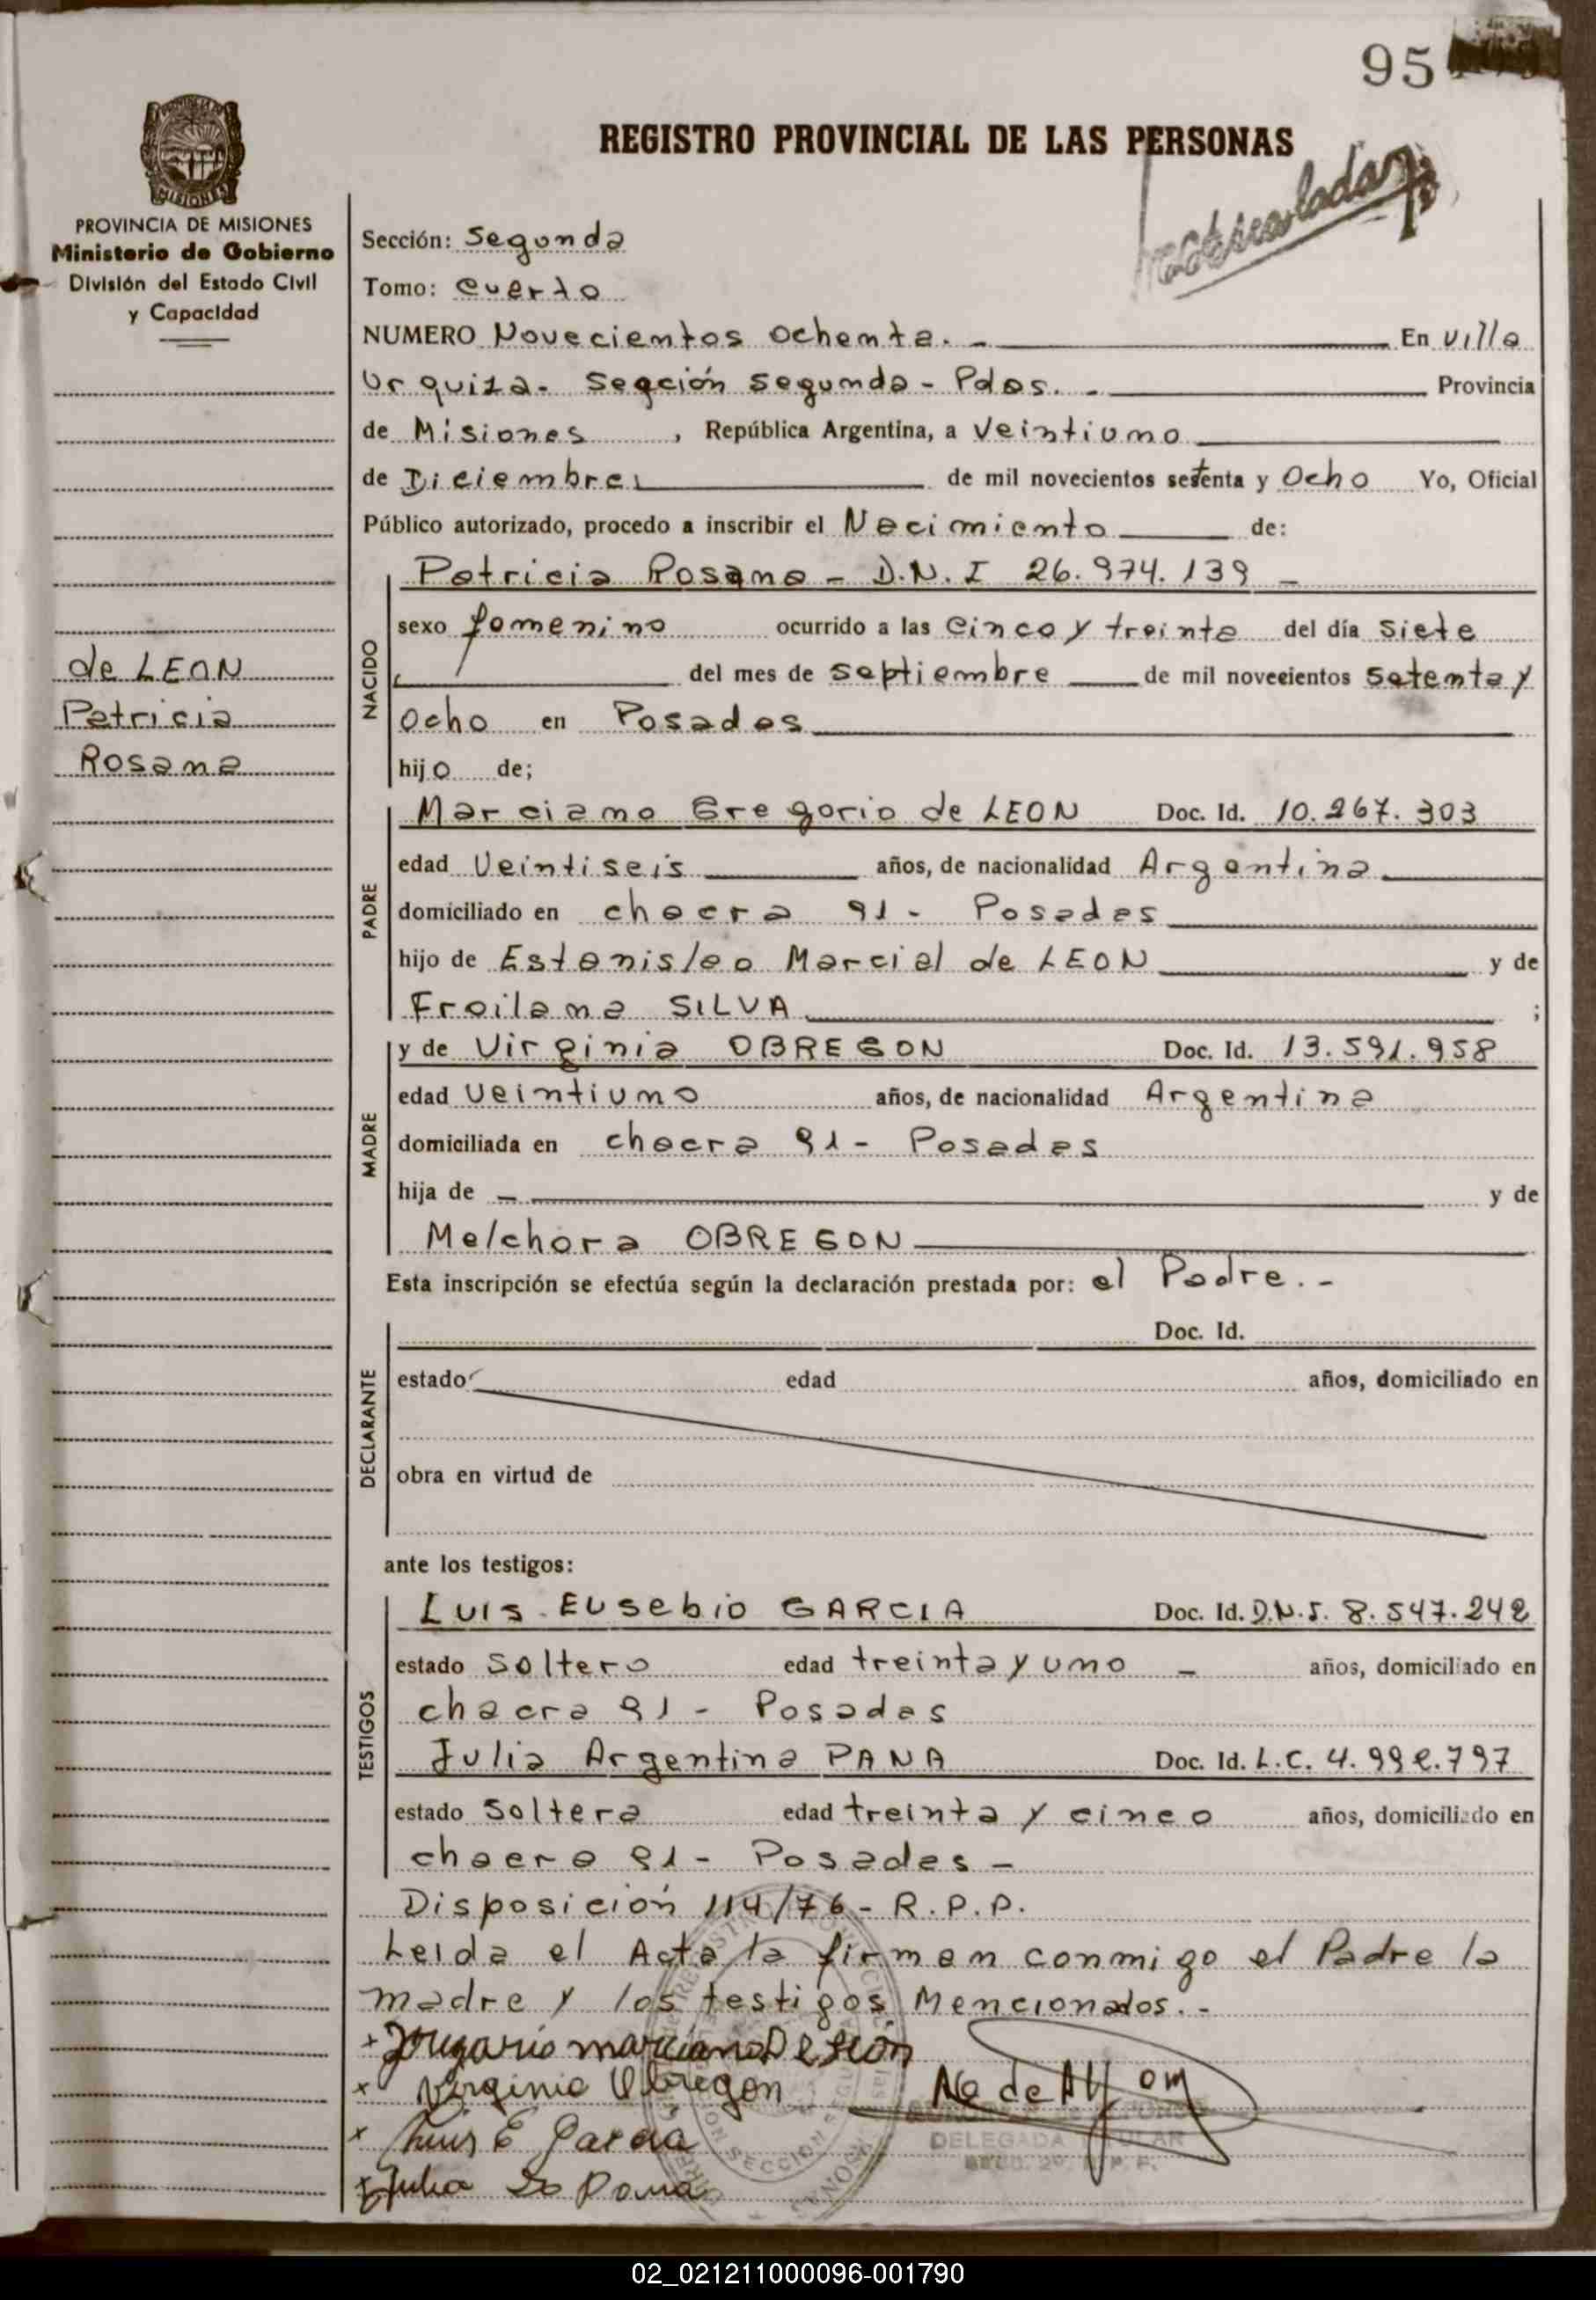 95
REGISTRO PROVINCIAL DE LAS PERSONAS
Matriculada
MISIONES
PROVINCIA DE MISIONES
Ministerio de Gobierno
División del Estado Civil
y Capacidad
Sección: Segunda
Tomo: Cuarto
NUMERO Novecientos ochenta. - En Villa
Urquiza - Sección Segunda - Pdas. - Provincia
de Misiones, República Argentina, a Veintiuno
de Diciembre de mil novecientos setenta y Ocho Yo, Oficial
Público autorizado, procedo a inscribir el Nacimiento de:
NACIDO
Patricia Rosana - D.N.I 26.974.139 -
sexo femenino ocurrido a las Cinco y treinta del día Siete
del mes de Septiembre de mil novecientos Setenta y
Ocho en Posadas
hijo de;
de LEON
Patricia
Rosana
PADRE
Marciano Gregorio de LEON Doc. Id. 10.267.303
edad Veintiseis años, de nacionalidad Argentina
domiciliado en chacra 91 - Posadas
hijo de Estanislao Marcial de LEON y de
Froilana SILVA ;
MADRE
y de Virginia OBREGON Doc. Id. 13.591.958
edad Veintiuno años, de nacionalidad Argentina
domiciliada en chacra 91 - Posadas
hija de - y de
Melchora OBREGON
Esta inscripción se efectúa según la declaración prestada por: el Padre. -
DECLARANTE
Doc. Id.
estado edad años, domiciliado en
obra en virtud de
ante los testigos:
TESTIGOS
Luis Eusebio GARCIA Doc. Id. D.N.I. 8.547.242
estado Soltero edad treinta y uno - años, domiciliado en
chacra 91 - Posadas
Julia Argentina PANA Doc. Id. L.C. 4.992.797
estado Soltera edad treinta y cinco años, domiciliado en
chacra 91 - Posadas -
Disposición 114/76 - R.P.P.
Leida el Acta la firman conmigo el Padre la
madre y los testigos Mencionados. -
marciano De León
x Virginia Obregon
x Luis E Garcia
x Julia
DELEGADA TITULAR
SECCION
02_021211000096-001790